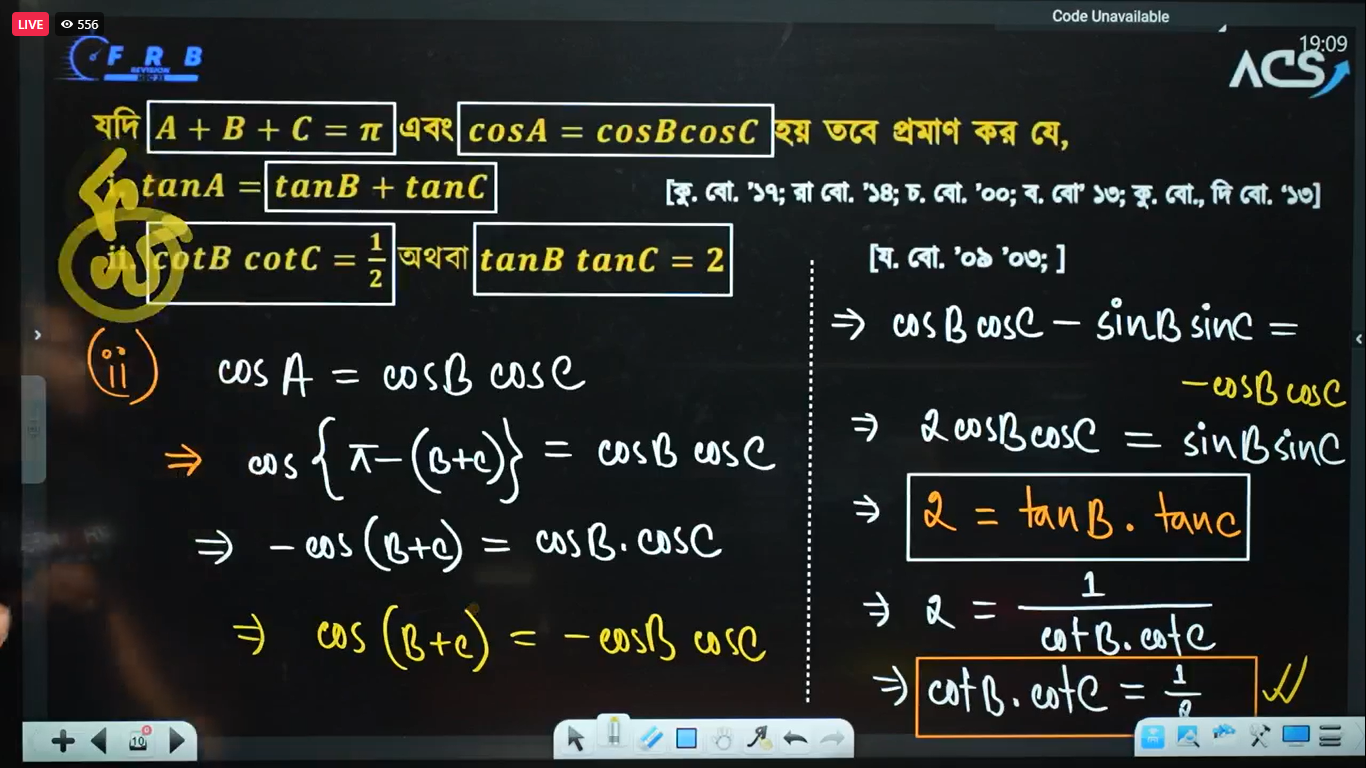 LIVE 556
Code Unavailable
19:09
FRB
REVISION
ACS
যদি A + B + C = π এবং cosA = cosBcosC হয় তবে প্রমাণ কর যে,
tanA = tanB + tanC [কু. বো. '১৭; রা বো. '১৪; চ. বো. '০০; ব. বো' ১৩; কু. বো., দি বো. '১৩]
ii. cotB cotC = 1/2 অথবা tanB tanC = 2 [য. বো. '০৯ '০৩; ]
(ii) cos A = cosB cosC
⇒ cos {π-(B+C)} = cosB cosC
⇒ -cos (B+C) = cosB. cosC
⇒ cos (B+C) = -cosB cosC
⇒ cosB cosC - sinB sinC =
-cosB cosC
⇒ 2cosBcosC = sinBsinC
⇒ 2 = tanB. tanC
⇒ 2 = 1/cotB.cotC
⇒ cotB. cotC = 1/2
10